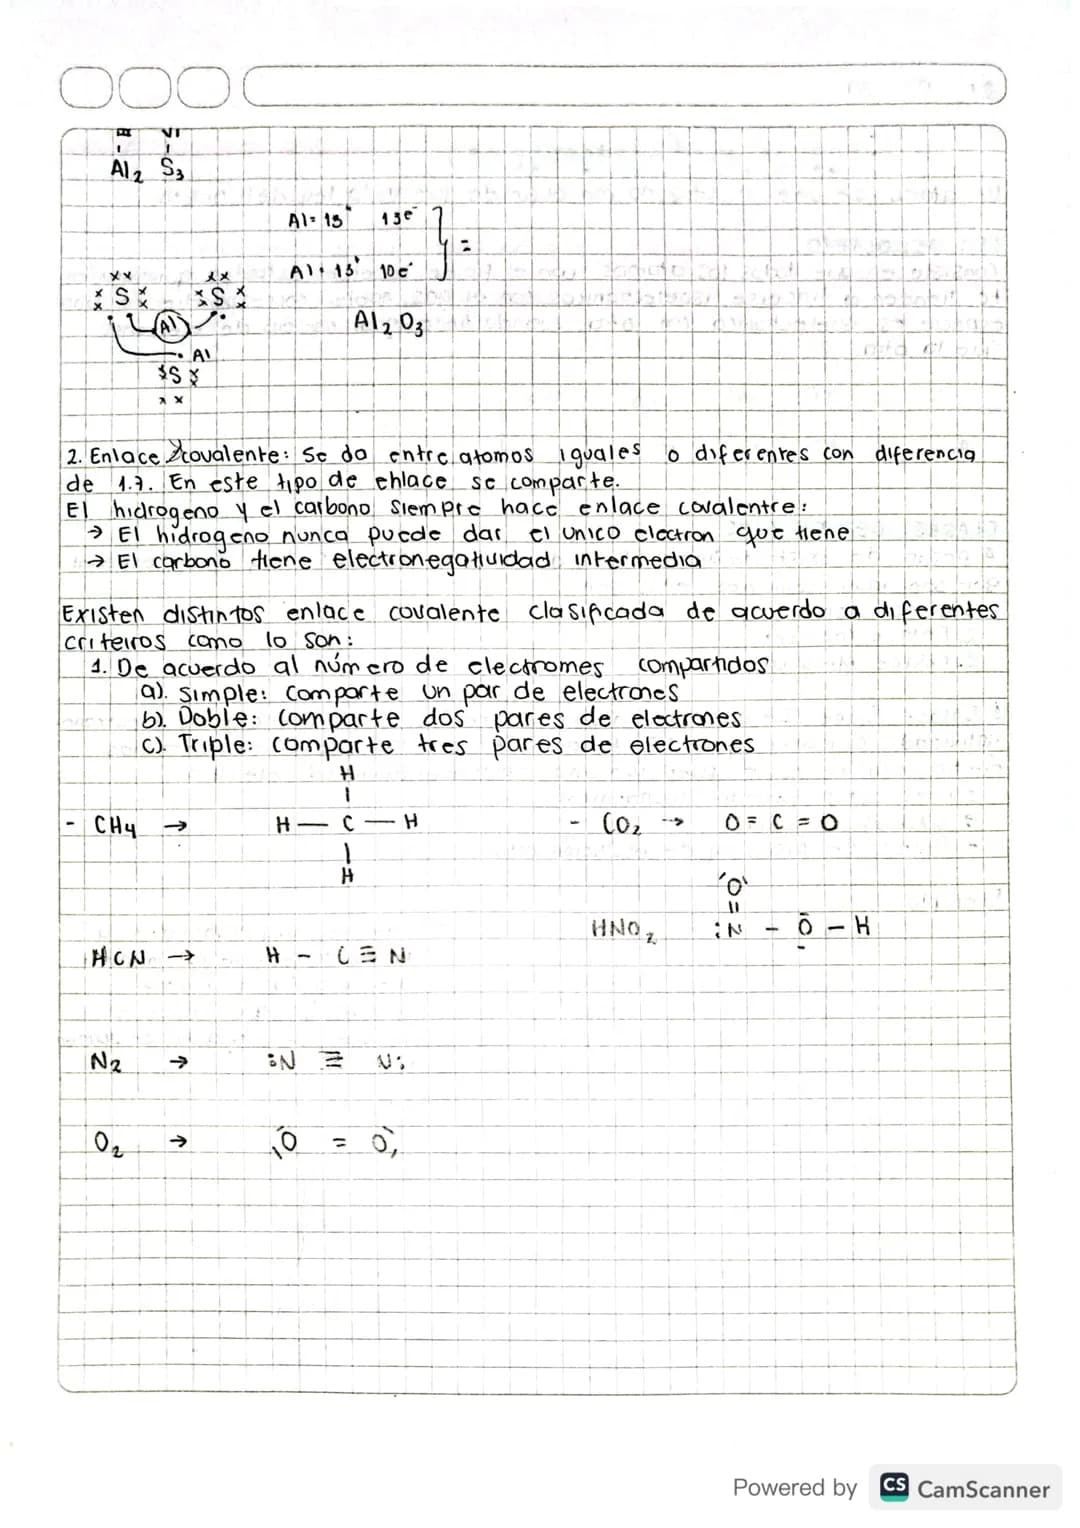 III VI
Al2 S3
Al= 13+ 13e-
=
Al+ 13+ 10e-
xx xx
S S
Al2O3
Al
Al
S
xx
2. Enlace covalente: Se da entre atomos iguales o diferentes con diferencia
de 1.7. En este tipo de enlace se comparte.
El hidrogeno y el carbono siempre hace enlace covalentre:
→ El hidrogeno nunca puede dar el unico electron que tiene
→ El carbono tiene electronegatividad intermedia
Existen distintos enlace covalente clasificada de acuerdo a diferentes
criteiros como lo son:
1. De acuerdo al número de electromes compartidos
a). Simple: comparte un par de electrones
b). Doble: comparte dos pares de electrones
c). Triple: comparte tres pares de electrones
H
|
- CH4 → H — C — H
|
H
- CO2 --> O = C = O
'O'
||
HNO2 :N - O - H
HCN → H - C ≡ N
N2 → :N ≡ N:
O2 → O = O
Powered by CS CamScanner